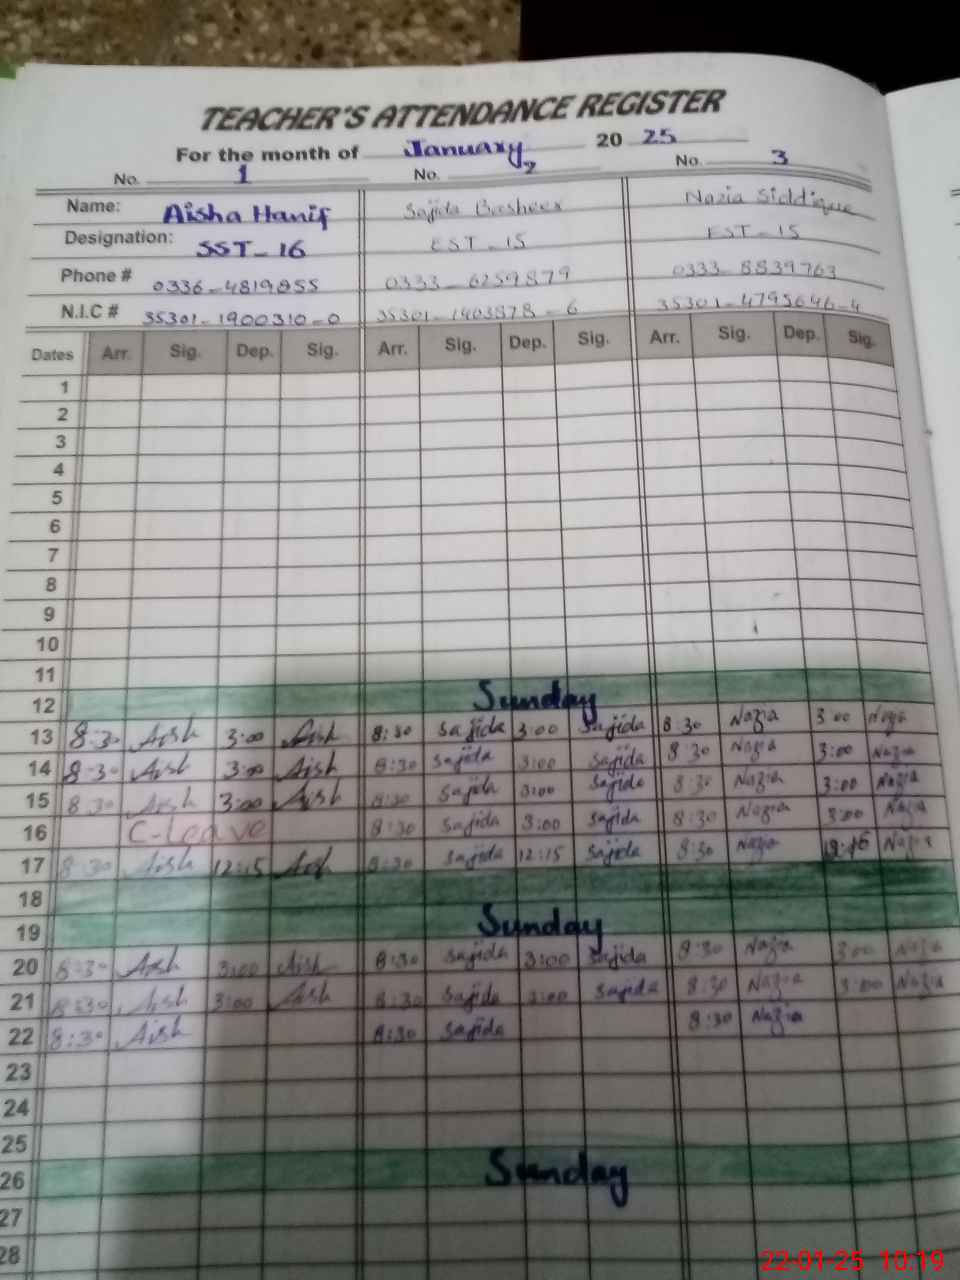 TEACHER'S ATTENDANCE REGISTER
For the month of January 20 25
No. 1 No. 2 No. 3
Name: Aisha Hanif Sajida Basheer Nazia Siddique
Designation: SST-16 EST-15 EST-15
Phone # 0336-4819855 0333-6259879 0333-8839763
N.I.C # 35301-1900310-0 35301-1403878-6 35301-4795646-4
Dates Arr. Sig. Dep. Sig. Arr. Sig. Dep. Sig. Arr. Sig. Dep. Sig.
1
2
3
4
5
6
7
8
9
10
11
12 Sunday
13 8:30 Aish 3:00 Aish 8:30 Sajida 3:00 Sajida 8:30 Nazia 3:00 Nazia
14 8:30 Aish 3:00 Aish 8:30 Sajida 3:00 Sajida 8:30 Nazia 3:00 Nazia
15 8:30 Aish 3:00 Aish 8:30 Sajida 3:00 Sajida 8:30 Nazia 3:00 Nazia
16 C-Leave 8:30 Sajida 3:00 Sajida 8:30 Nazia 3:00 Nazia
17 8:30 Aish 12:15 Aish 8:30 Sajida 12:15 Sajida 8:30 Nazia Nazia
18
19 Sunday
20 8:30 Aish 3:00 Aish 8:30 Sajida 3:00 Sajida 8:30 Nazia 3:00 Nazia
21 8:30 Aish 3:00 Aish 8:30 Sajida 3:00 Sajida 8:30 Nazia 3:00 Nazia
22 8:30 Aish 8:30 Sajida 8:30 Nazia
23
24
25
26 Sunday
27
28
22-01-25 10:19